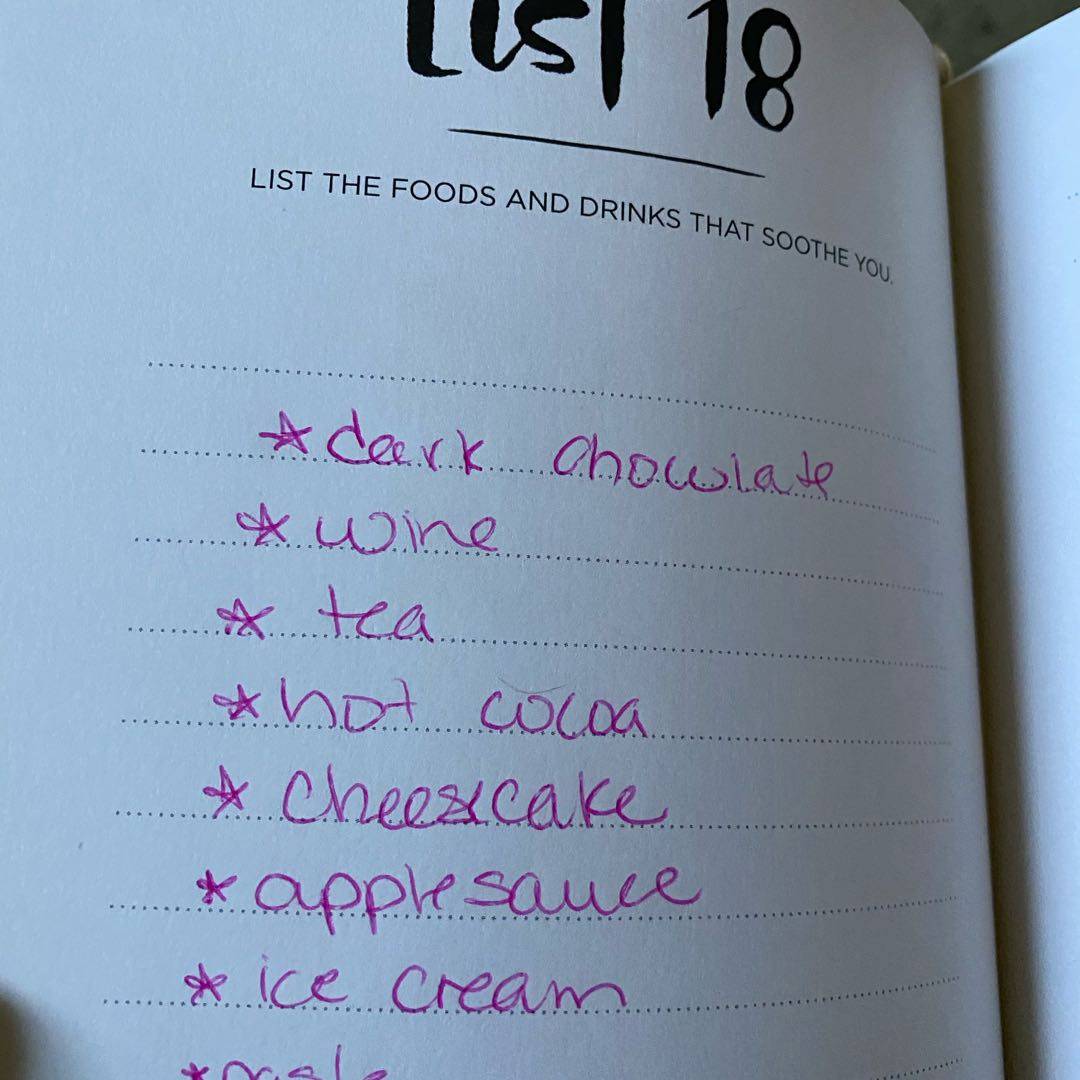 LIST 18
LIST THE FOODS AND DRINKS THAT SOOTHE YOU.
* dark chocolate
* wine
* tea
* hot cocoa
* cheesecake
* applesauce
* ice cream